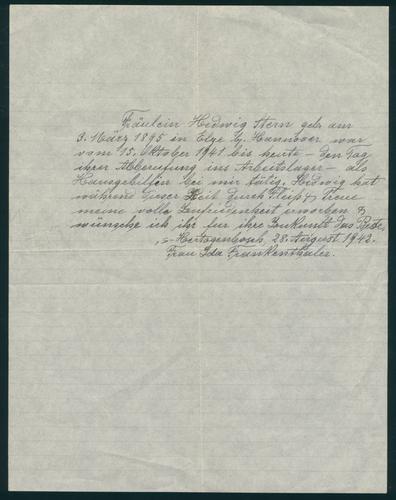 Fräulein Hedwig Stern geb. am
3. März 1895 in Elze b. Hannover war
vom 15. Oktober 1941 bis heute – den Tag
ihrer Abberufung ins Arbeitslager – als
Hausgehilfin bei mir tätig. Hedwig hat
während dieser Zeit durch Fleiß & Treue
meine volle Zufriedenheit erworben &
wünsche ich ihr für ihre Zukunft das Beste.
's-Hertogenbosch, 28. August 1942.
Frau Ida Frankenthaler.